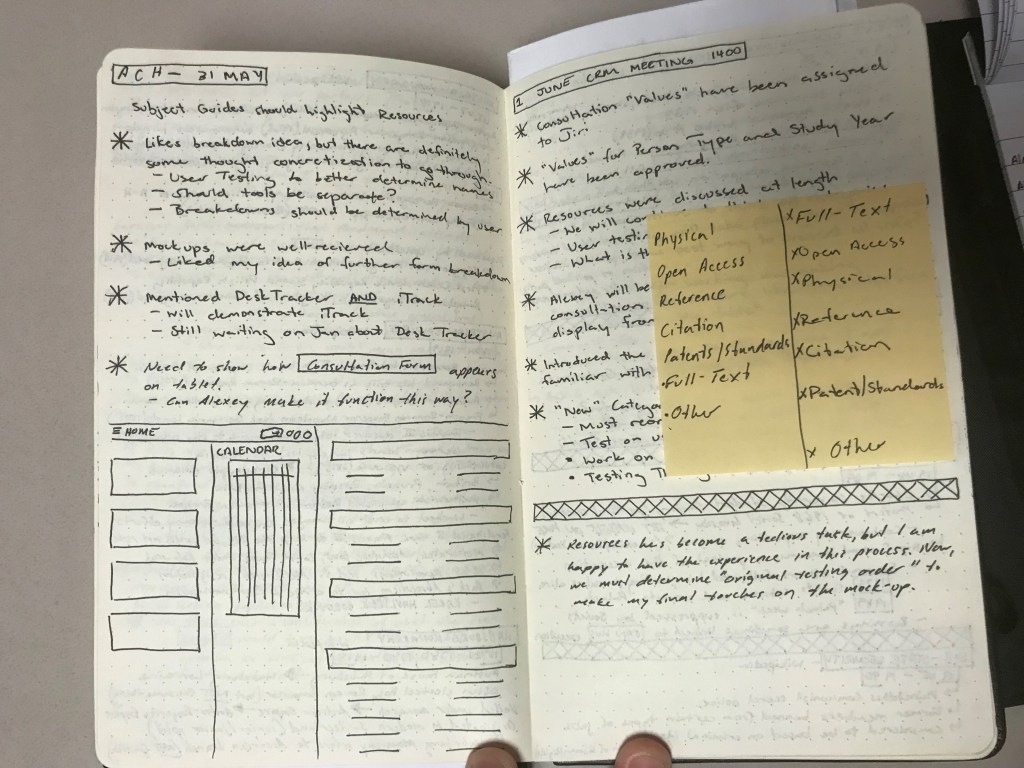 ACH - 31 MAY
Subject Guides should highlight Resources
* Likes breakdown idea, but there are definitely
some thought concretization to go through.
- User Testing to better determine names
- Should tools be separate?
- Breakdowns should be determined by user
* Mockups were well-recieved
- Liked my idea of further form breakdown
* Mentioned DeskTracker AND iTrack
- will demonstrate iTrack
- Still waiting on Jan about Desk Tracker
* Need to show how Consultation Form appears
on tablet.
- Can Alexey make it function this way?
≡ HOME
CALENDAR
1 JUNE CRM MEETING 1400
* Consultation "Values" have been assigned
to Jiri
* "Values" for Person Type and Study Year
have been approved.
* Resources were discussed at length
- We will
- User
- What is
* Alexey will be
consultation
display from
* Introduced the
familiar with
* "New"
- Must
- Test on
• Work on
• Testing
Physical
Open Access
Reference
Citation
Patents/Standards
• Full-Text
• Other
x Full-Text
x Open Access
x Physical
x Reference
x Citation
x Patent/Standards
x Other
* Resources has become a tedious task, but I am
happy to have the experience in this process. Now,
we must determine "original testing order" to
make my final touches on the mock-up.